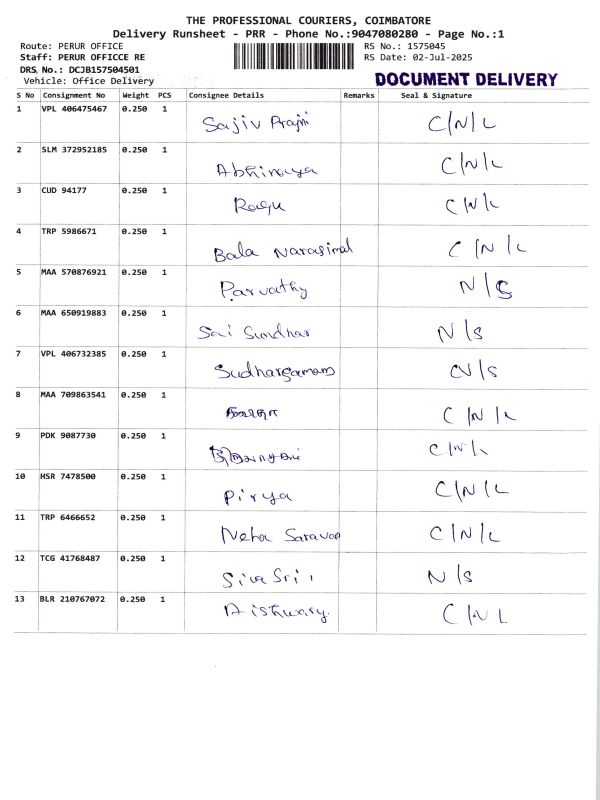 THE PROFESSIONAL COURIERS, COIMBATORE
Delivery Runsheet - PRR - Phone No.:9047080280 - Page No.:1
Route: PERUR OFFICE RS No.: 1575045
Staff: PERUR OFFICCE RE RS Date: 02-Jul-2025
DRS No.: DCJB157504501
Vehicle: Office Delivery DOCUMENT DELIVERY
S No Consignment No Weight PCS Consignee Details Remarks Seal & Signature
1 VPL 406475467 0.250 1 Sajiv C/N/L
2 SLM 372952185 0.250 1 Abhinaya C/N/L
3 CUD 94177 0.250 1 Ragu C/N/L
4 TRP 5986671 0.250 1 Bala Narasimal C/N/L
5 MAA 570876921 0.250 1 Parvathy N/S
6 MAA 650919883 0.250 1 Sai Sundhar N/S
7 VPL 406732385 0.250 1 N/S
8 MAA 709863541 0.250 1 C/N/L
9 PDK 9087730 0.250 1 C/N/L
10 HSR 7478500 0.250 1 Pirya C/N/L
11 TRP 6466652 0.250 1 Neha Saravan C/N/L
12 TCG 41768487 0.250 1 Siva Sri N/S
13 BLR 210767072 0.250 1 Aishwary. C/N L